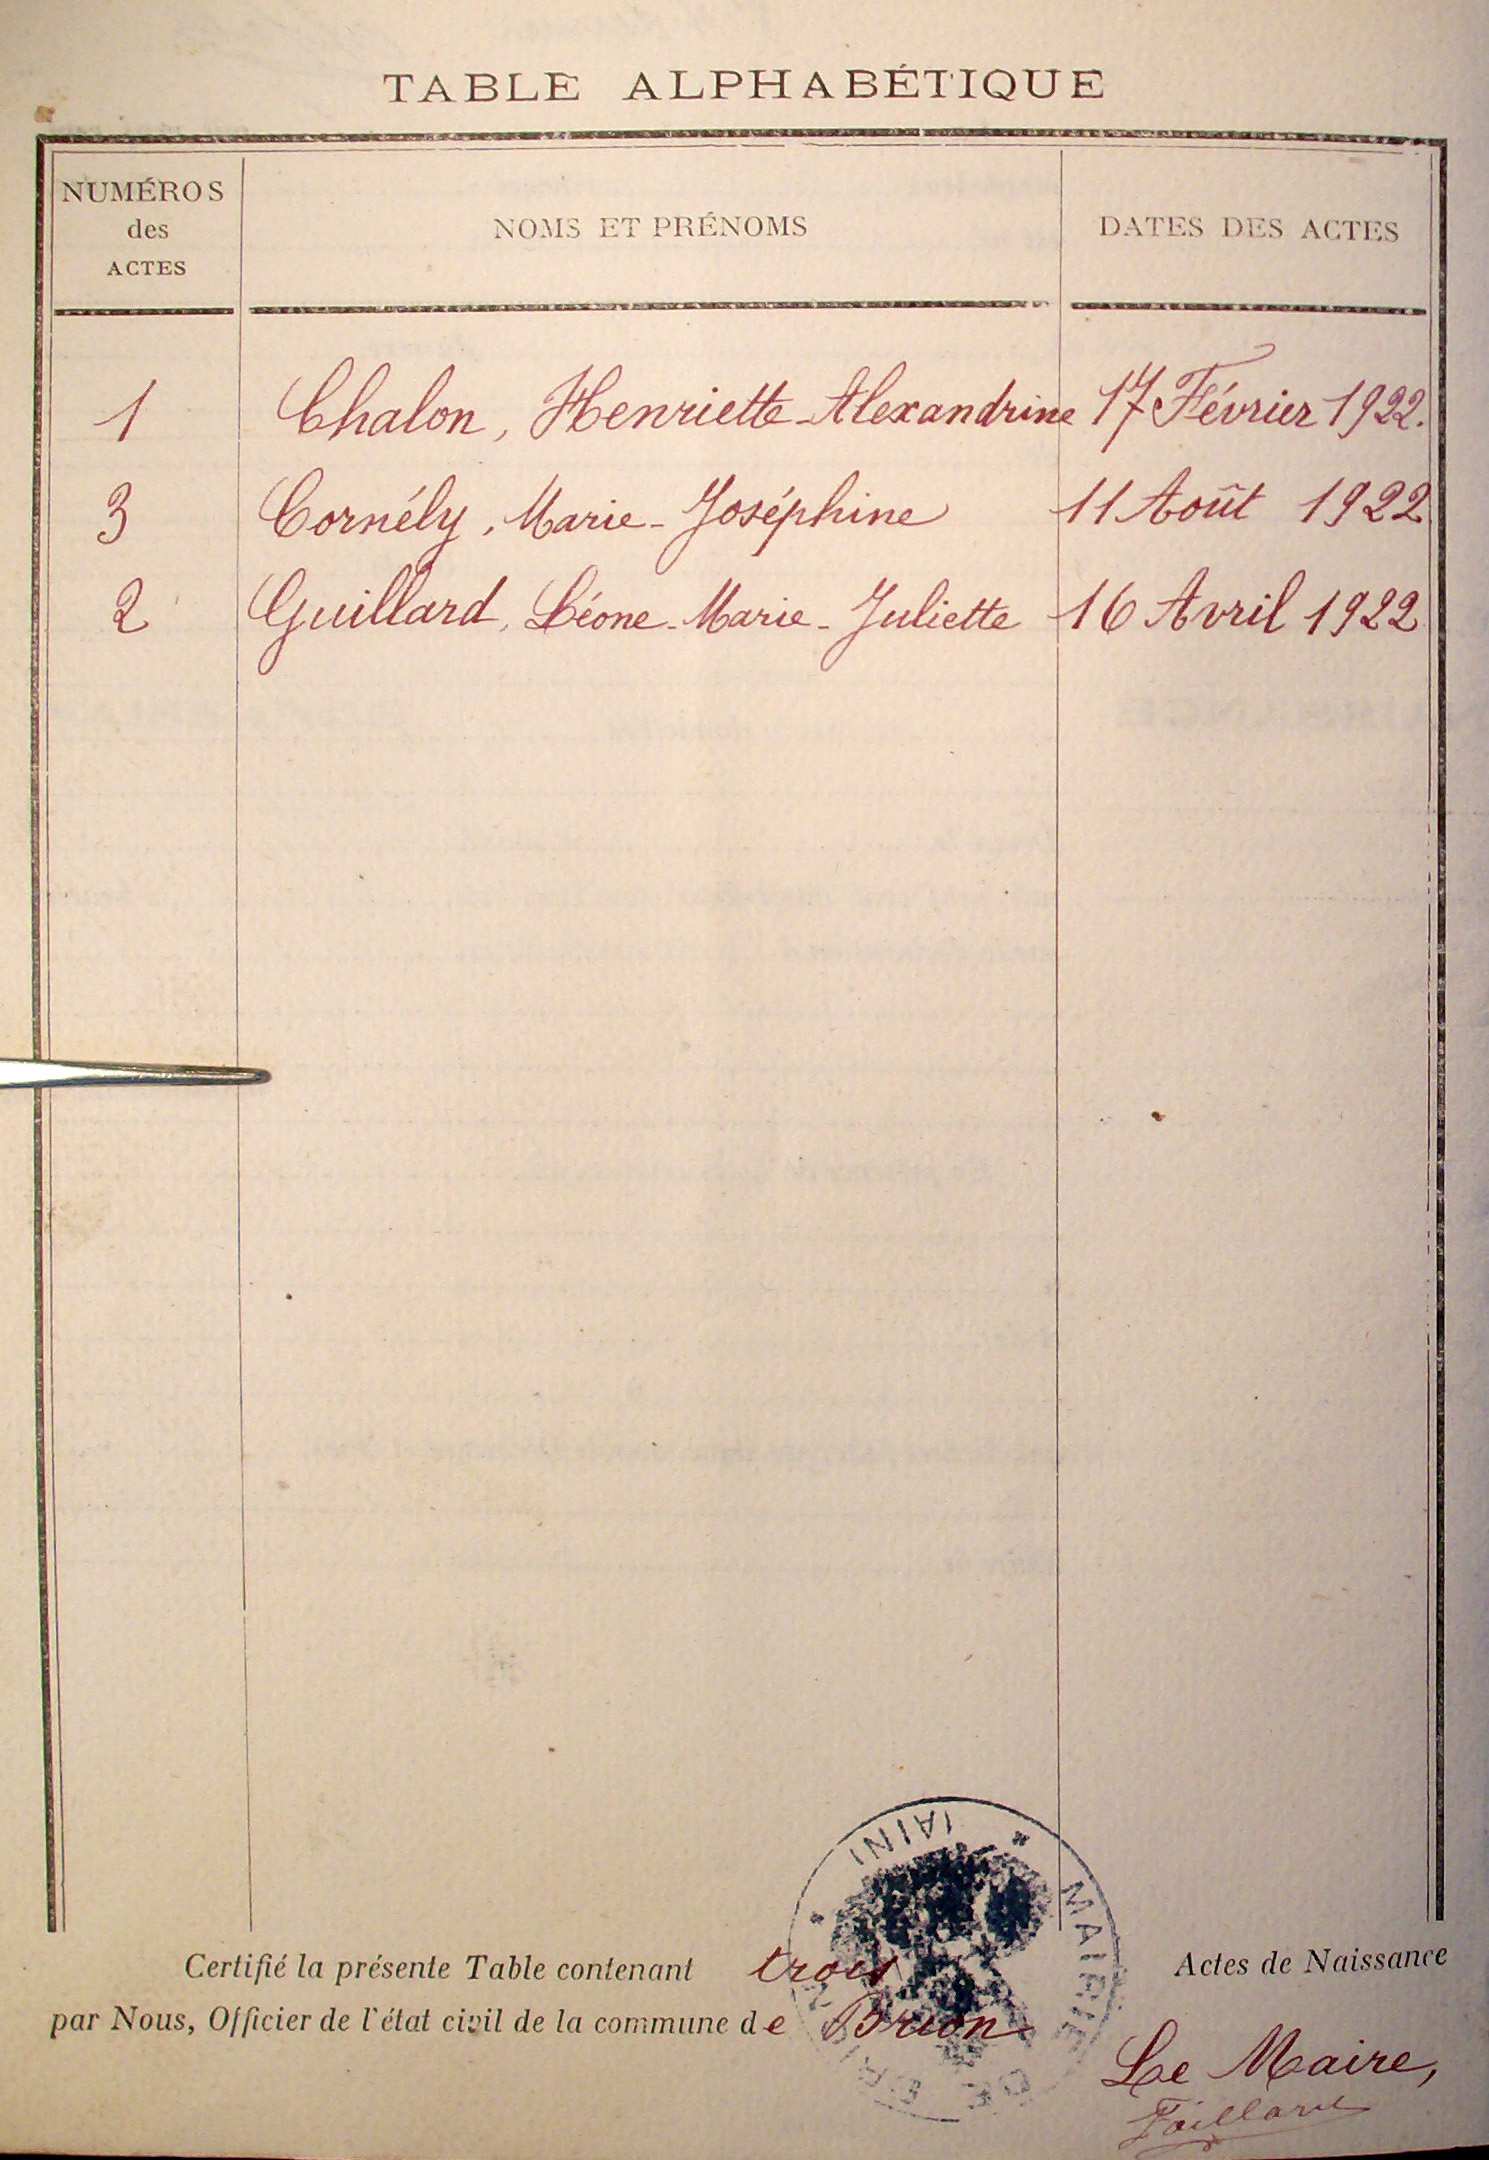 TABLE ALPHABÉTIQUE
NUMÉROS
des
ACTES
NOMS ET PRÉNOMS
DATES DES ACTES
1 Chalon, Henriette-Alexandrine 17 Février 1922.
3 Cornély, Marie-Joséphine 11 Août 1922
2 Guillard, Léone-Marie-Juliette 16 Avril 1922
Certifié la présente Table contenant trois Actes de Naissance
par Nous, Officier de l'état civil de la commune de Brion
MAIRIE DE BRION * (AIN) *
Le Maire,